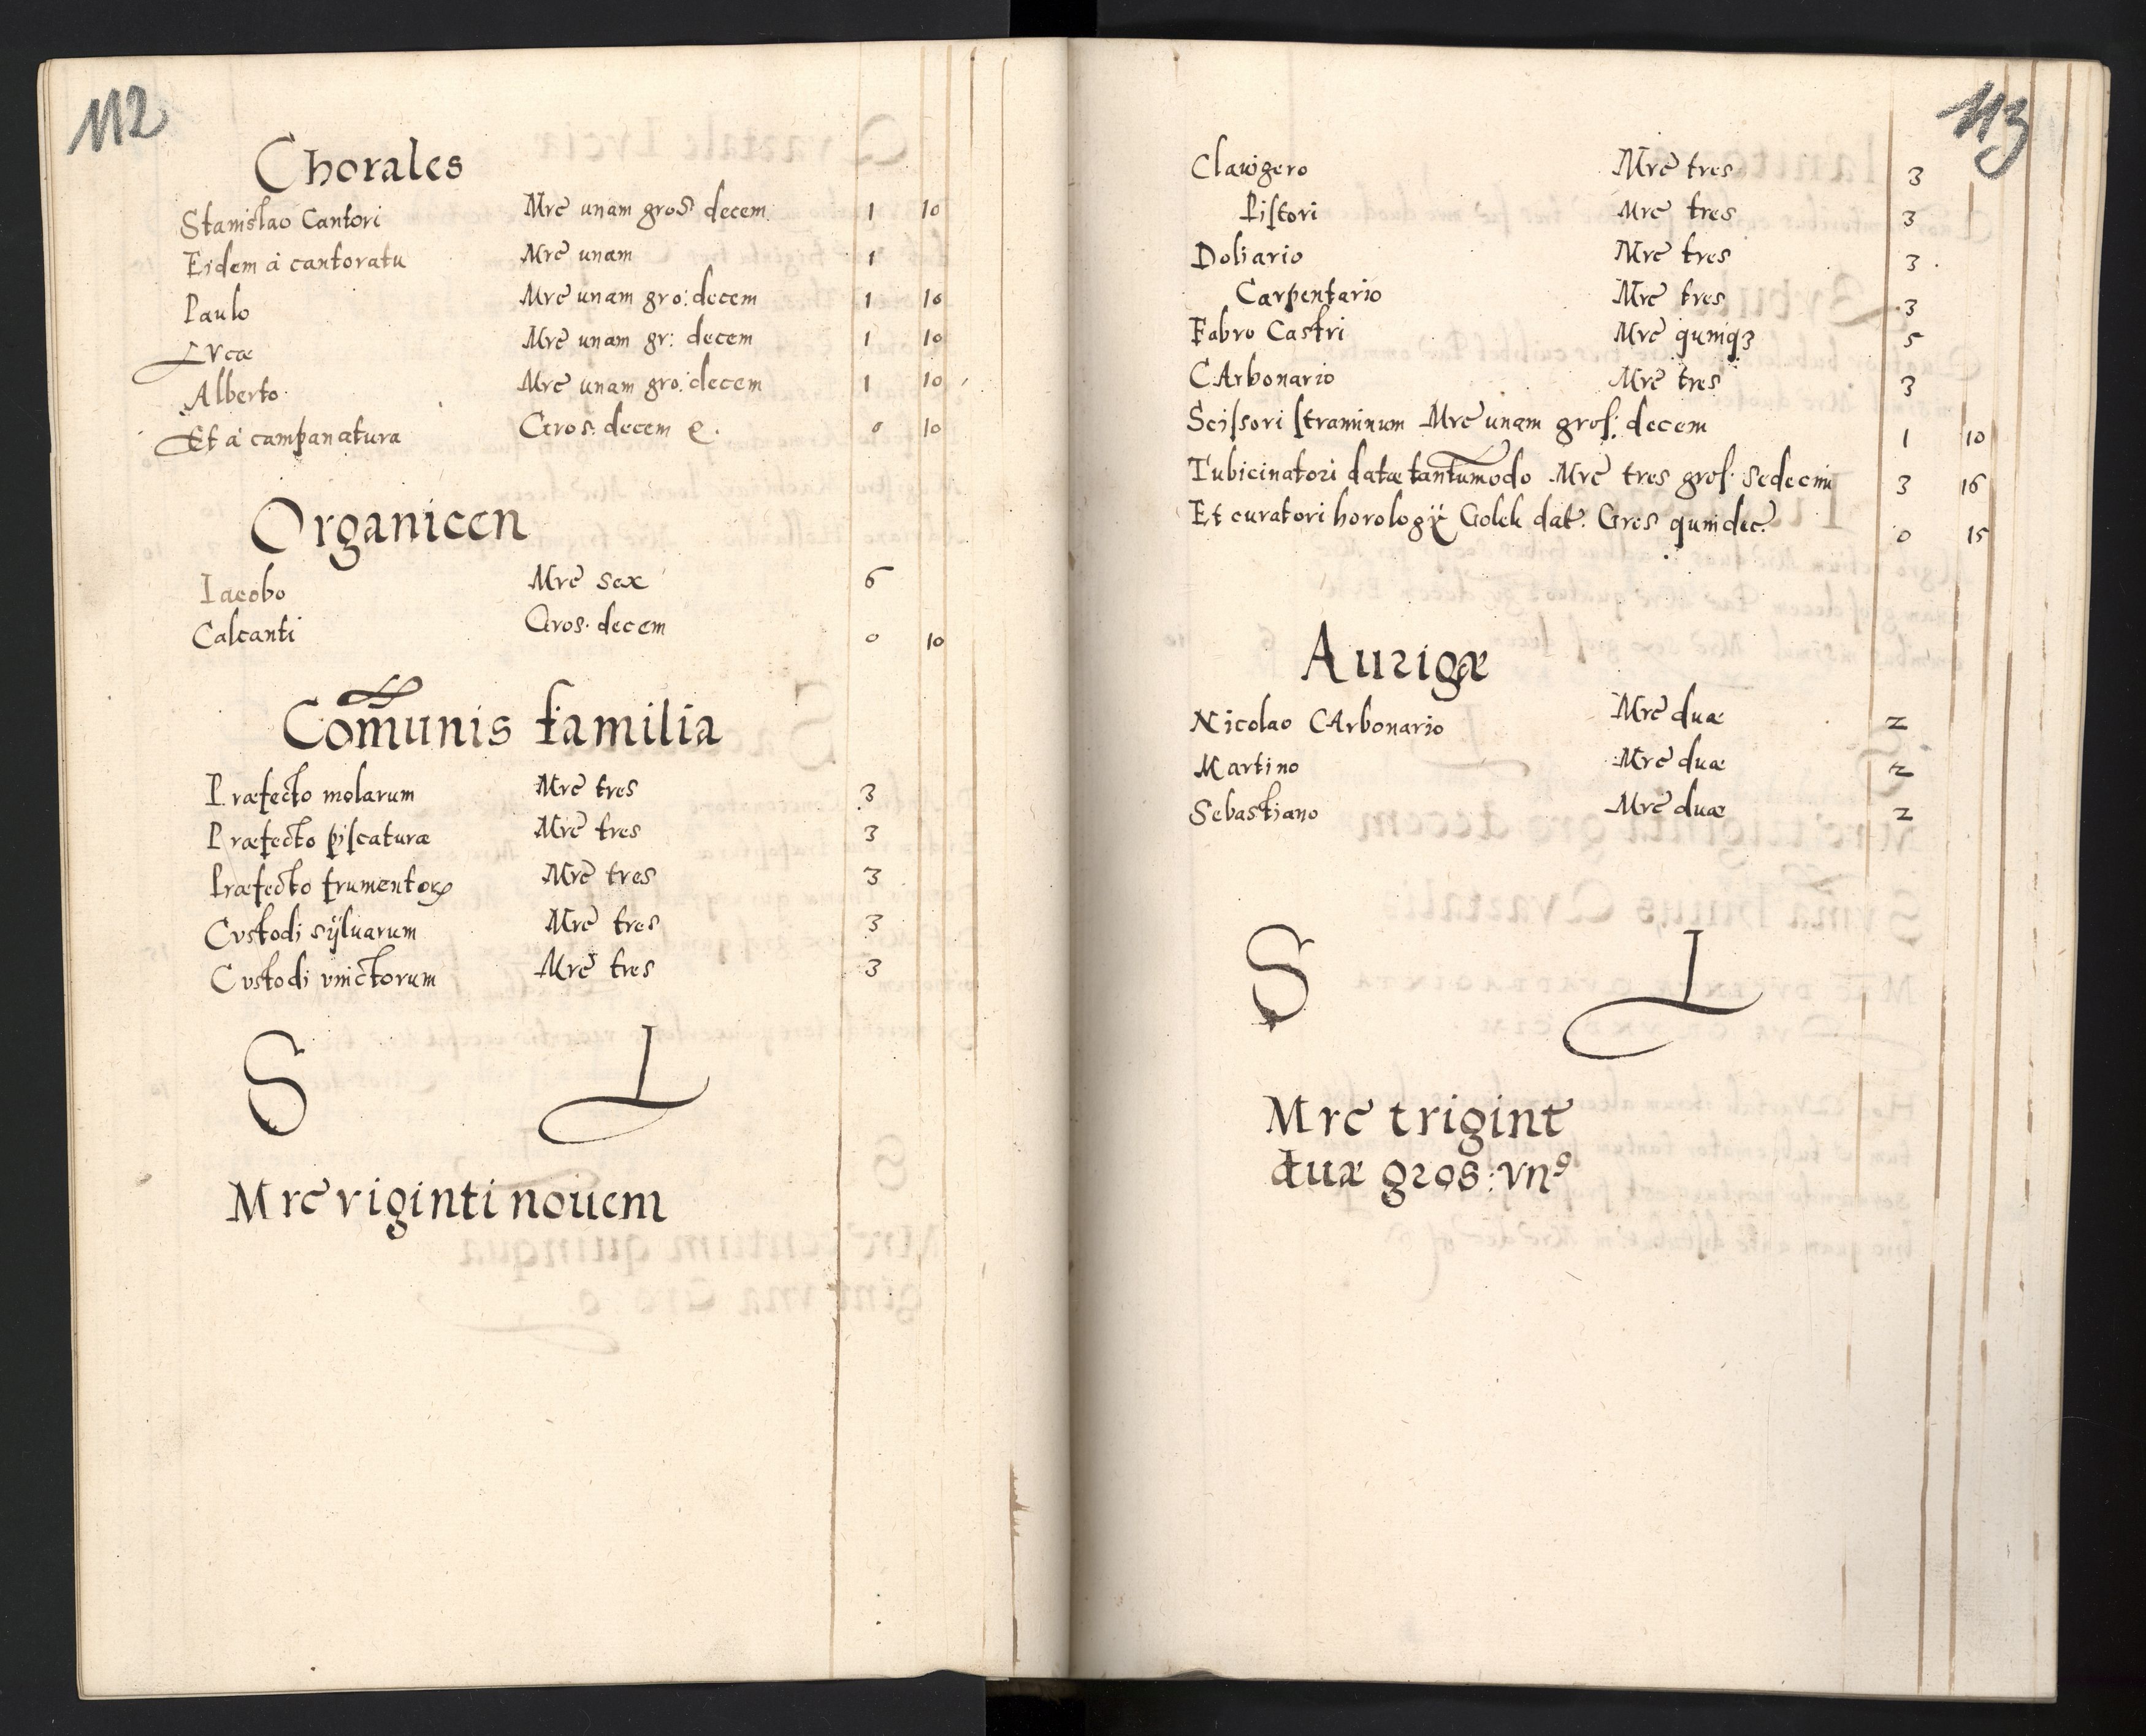 112
Chorales
Stanislao Cantori Mrc̃ unam gros decem 1 10
Eidem à cantoratu Mrc̃ unam 1
Paulo Mrc̃ unam gro: decem 1 10
Lvcæ Mrc̃ unam gr: decem 1 10
Alberto Mrc̃ unam gro: decem 1 10
Et à campanatura Gros: decem 0 10
Organicen
Iacobo Mrc̃ sex 6
Calcanti Gros. decem 0 10
Com̃unis familia
Præfecto molarum Mrc̃ tres 3
Præfecto piſcaturæ Mrc̃ tres 3
Præfecto frumentoꝝ Mrc̃ tres 3
Cvstodi sÿluarum Mrc̃ tres 3
Cvstodi vinctorum Mrc̃ tres 3
S L
Mrc̃ viginti nouem
113
Clavigero Mrc̃ tres 3
Piſtori Mrc̃ tres 3
Doliario Mrc̃ tres 3
Carpentario Mrc̃ tres 3
Fabro Castri Mrc̃ quinqȝ 5
CArbonario Mrc̃ tres 3
Sciſsori ſtraminum Mrc̃ unam groſ: decem 1 10
Tubicinatori datæ tantum̃odo Mrc̃ tres groſ. sedecim 3 16
Et curatori horologÿ Golek dat. Gros quindec̃ 0 15
Aurigæ
Nicolao CArbonario Mrc̃ duæ 2
Martino Mrc̃ duæ 2
Sebastiano Mrc̃ duæ 2
S L
Mrc̃ trigint̃
duæ gros: vnꝰ